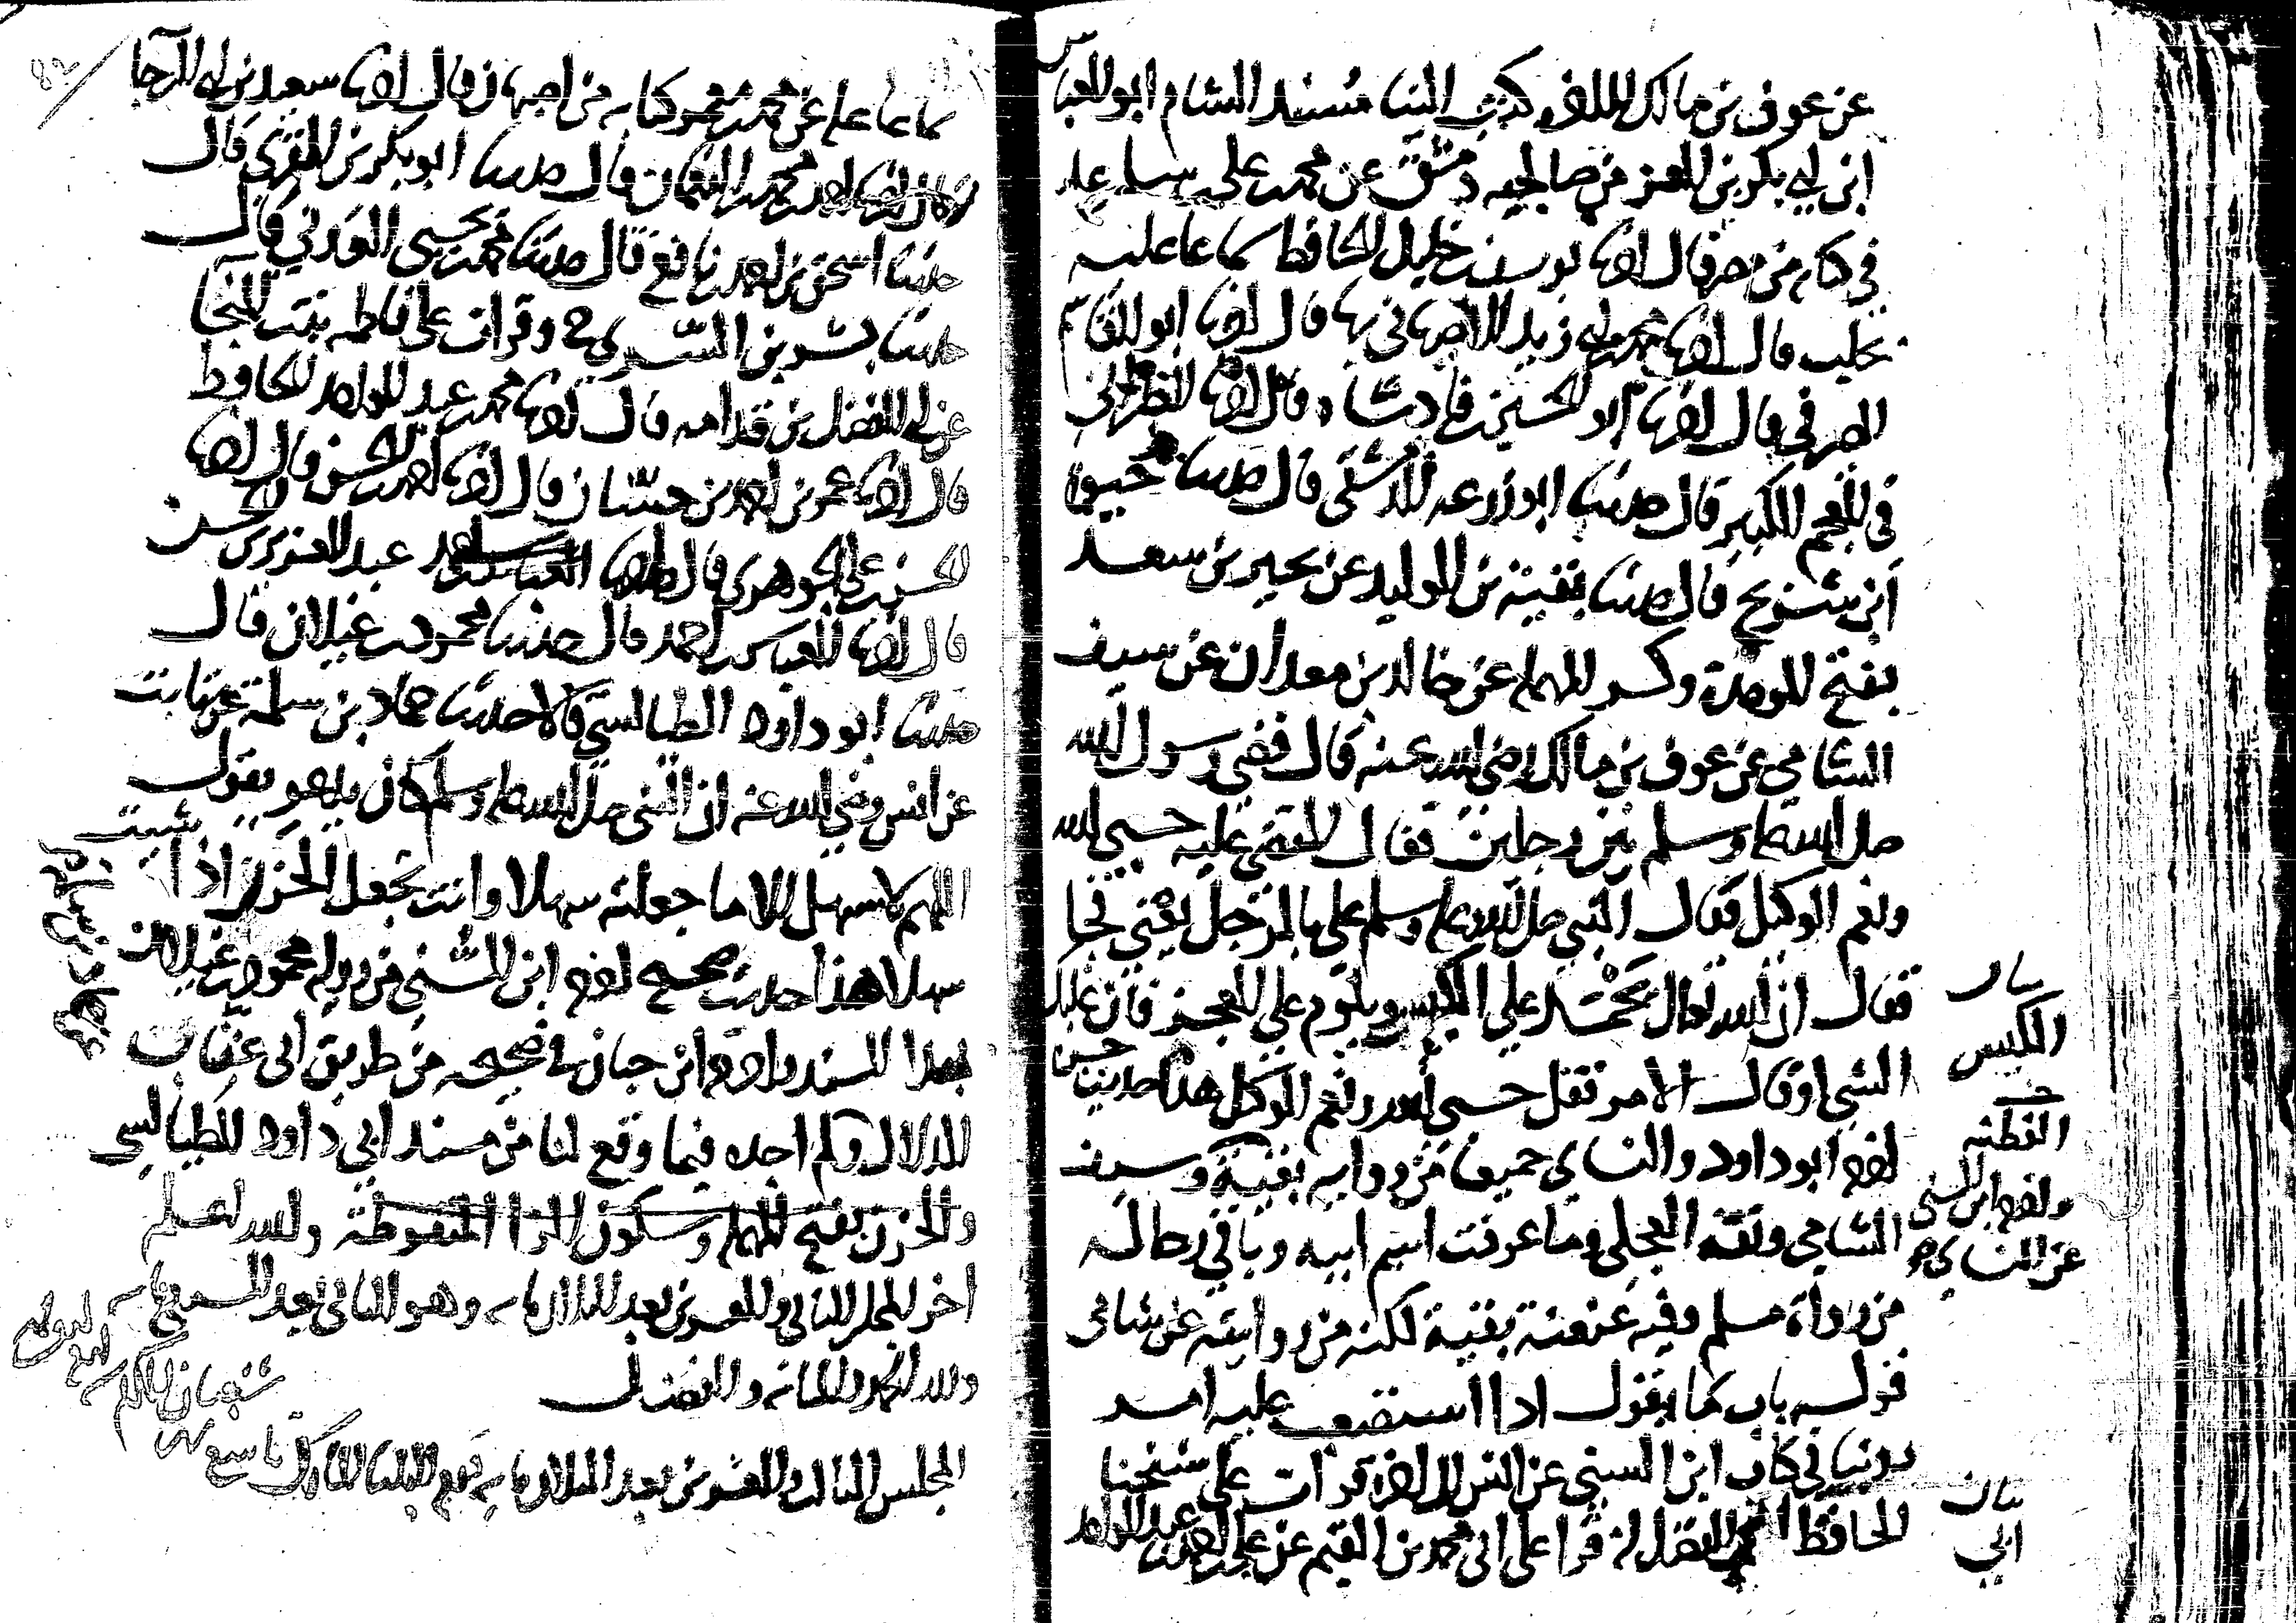 عن عوف بن مالك الى اخره كتب الينا مسند الشام ابو العباس
ابن ابي بكر بن العز من صالحية دمشق عن محمد بن علي بن ساعد
في كتابه من مصر قال اخبرنا يوسف بن خليل الحافظ سماعا عليه
بحلب قال اخبرنا محمد بن ابي زيد الاصبهاني بها قال اخبرنا ابو القاسم
الصيرفي قال اخبرنا ابو الحسين بن فادشاه قال اخبرنا الطبراني
في المعجم الكبير قال حدثنا ابو زرعه الدمشقي قال حدثنا حيوة
ابن شريح قال حدثنا بقية بن الوليد عن بحير بن سعد
بفتح الموحدة وكسر المهملة عن خالد بن معدان عن سيف
الشامي عن عوف بن مالك رضي الله عنه قال قضى رسول الله
صلى الله عليه وسلم بين رجلين فقال المقضي عليه حسبي الله
ونعم الوكيل فقال النبي صلى الله عليه وسلم علي بالرجل يعني فجا
فقال ان الله تعالى يحمد على الكيس ويلوم على العجز فان غلبك
الشي او قال الامر فقل حسبي الله ونعم الوكيل هذا حديث حسن
اخرجه ابو داود والنساي جميعا من رواية بقية وسيف
الشامي وثقه العجلي وما عرفت اسم ابيه وباقي رجاله
من رواة مسلم وفيه عنعنة بقية لكنه من روايته عن شامي
قوله باب ما يقول اذا استصعب عليه امر
روينا في كتاب ابن السني عن انس الى اخره قرات على شيخنا
الحافظ ابي الفضل قرا على ابي محمد بن القيم عن علي بن احمد بن عبد الواحد
سان
الكيس
الفطنه
واخرجه ابن السني
عن النساي
سان
ابي
سماعا عليه عن محمد بن معمر كتابة من اصبهان قال اخبرنا سعيد بن ابي الرجا
قال اخبرنا احمد بن محمد بن النعمان قال حدثنا ابو بكر بن المقري قال
حدثنا اسحق بن احمد بن نافع قال حدثنا محمد بن يحيى العدني قال
حدثنا بشر بن السري ح وقرات على فاطمه بنت المنجا
عن ابي الفضل بن قدامه قال اخبرنا محمد بن عبد الواحد الحافظ
قال اخبرنا احمد بن الحسن قال اخبرنا
الحسن بن علي الجوهري قال اخبرنا عبد العزيز بن الحسن
قال اخبرنا العباس بن احمد قال حدثنا محمود بن غيلان قال
حدثنا ابو داود الطيالسي قالا حدثنا حماد بن سلمة عن ثابت
عن انس رضي الله عنه ان النبي صلى الله عليه وسلم كان يدعو يقول
اللهم لا سهل الا ما جعلته سهلا وانت تجعل الحزن اذا شيت
سهلا هذا حديث صحيح اخرجه ابن السني من رواية محمود بن غيلان
بهذا السند واخرجه ابن حبان في صحيحه من طريق ابي عتاب
الدلال ولم اجده فيما وقع لنا من مسند ابي داود الطيالسي
والحزن بفتح المهملة وسكون الزا المنقوطة والله اعلم
عن حماد بن سلمة
اخر المجلس الثاني والعشرين بعد الثلاثمايه وهو الثاني بعد السبعمايه
ولله الحمد والمنة والفضل
المجلس الثالث والعشرين بعد الثلاثمايه يوم الثلثا المبارك تاسع
شعبان المكرم